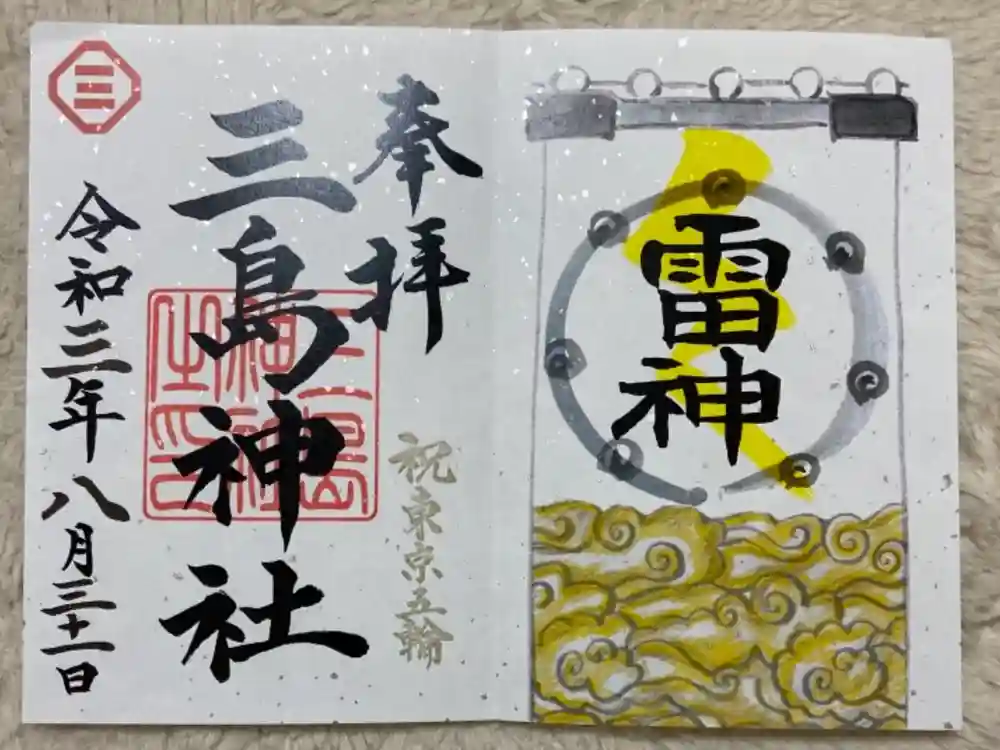 雷神
奉拝
祝東京五輪
三島神社
令和三年 八月三十一日
三